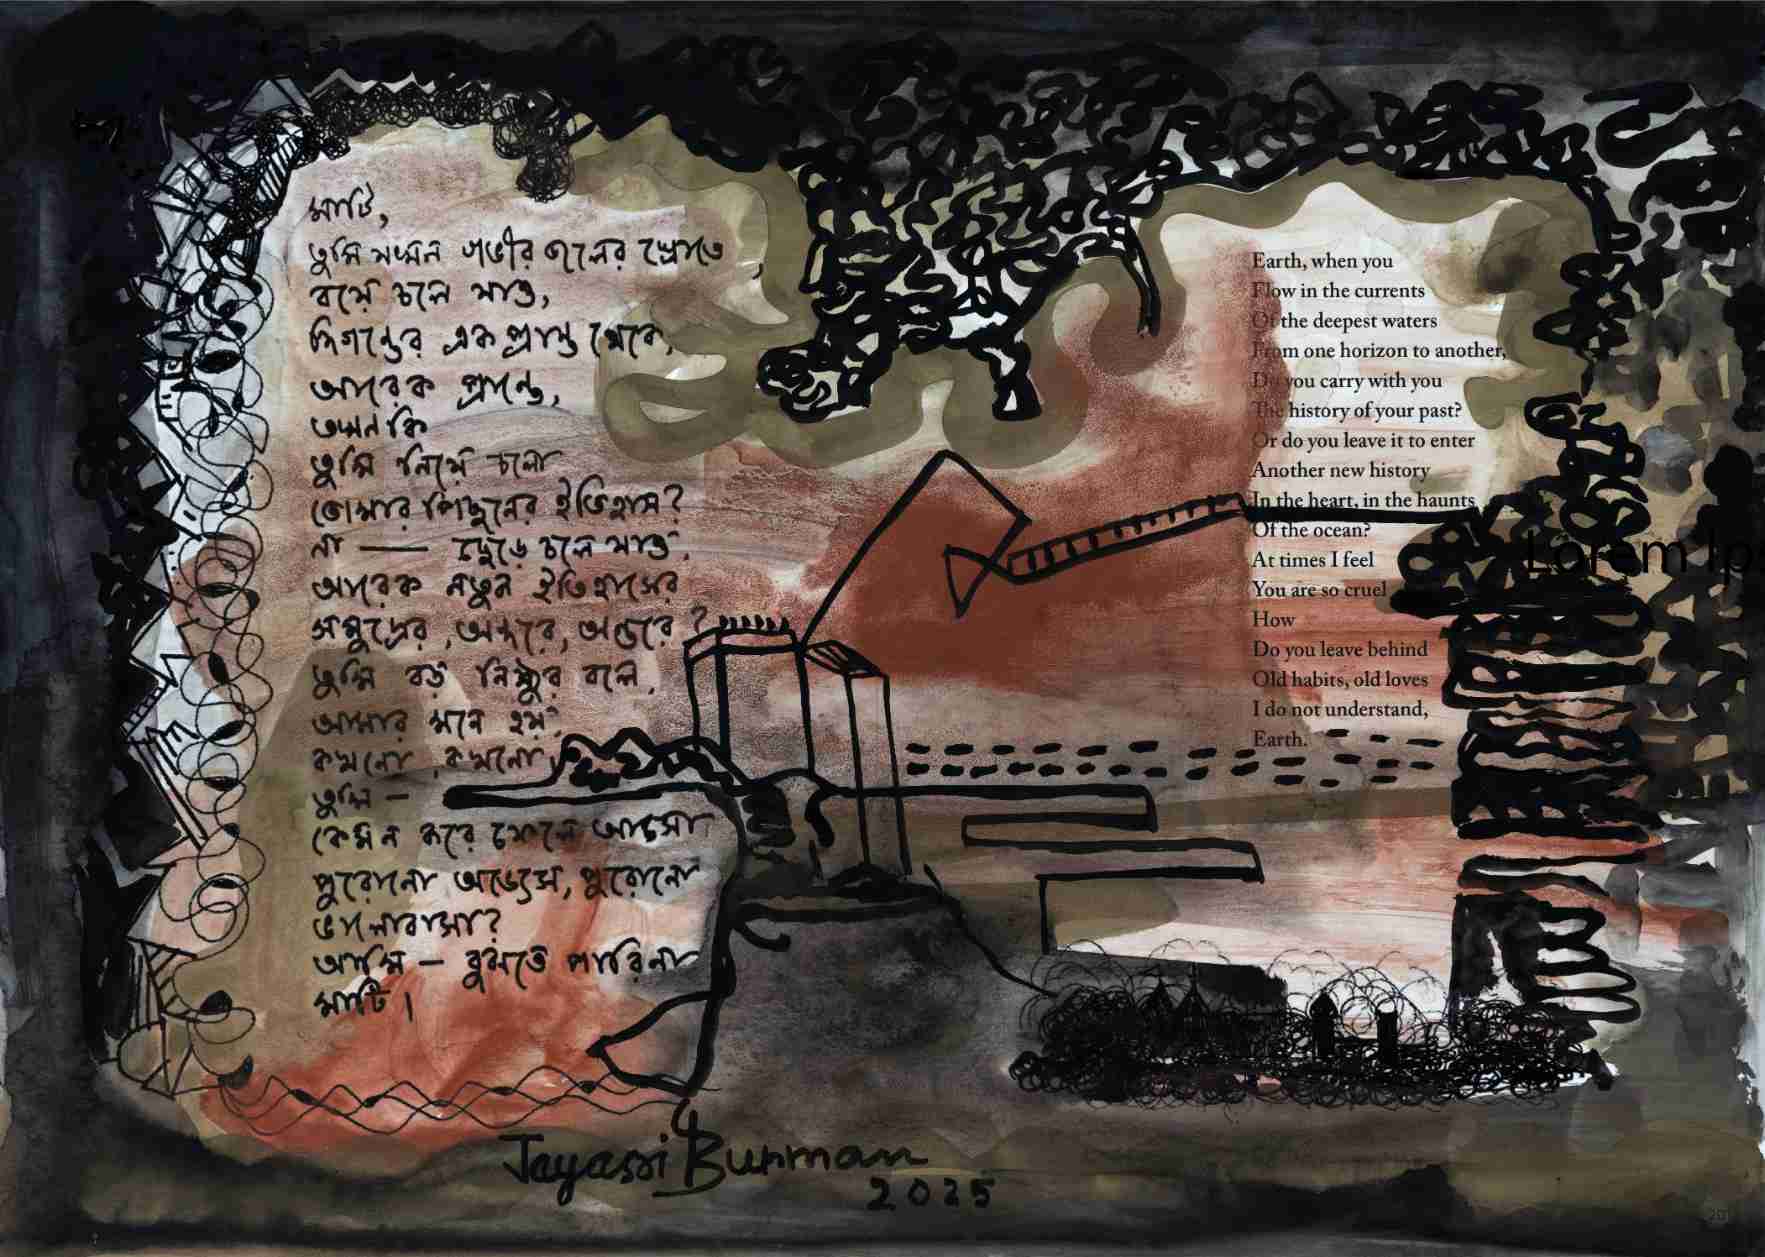 মাটি,
তুমি যখন গভীর জলের স্রোতে
বয়ে চলে যাও,
দিগন্তের এক প্রান্ত থেকে,
আরেক প্রান্তে,
তখন কি
তুমি নিয়ে চলো
তোমার পিছনের ইতিহাস?
না — ছেড়ে চলে যাও.
আরেক নতুন ইতিহাসের
সমুদ্রের, অন্দরে, অন্তরে?
তুমি বড় নিষ্ঠুর বলে,
আমার মনে হয়.
কখনো, কখনো,
তুমি —
কেমন করে ফেলে আসো
পুরোনো অভ্যেস, পুরোনো
ভালোবাসা?
আমি — বুঝতে পারিনা
মাটি।
Earth, when you
Flow in the currents
Of the deepest waters
From one horizon to another,
Do you carry with you
The history of your past?
Or do you leave it to enter
Another new history
In the heart, in the haunts
Of the ocean?
At times I feel
You are so cruel
How
Do you leave behind
Old habits, old loves
I do not understand,
Earth.
Lorem Ips
Jayasri Burman
2025